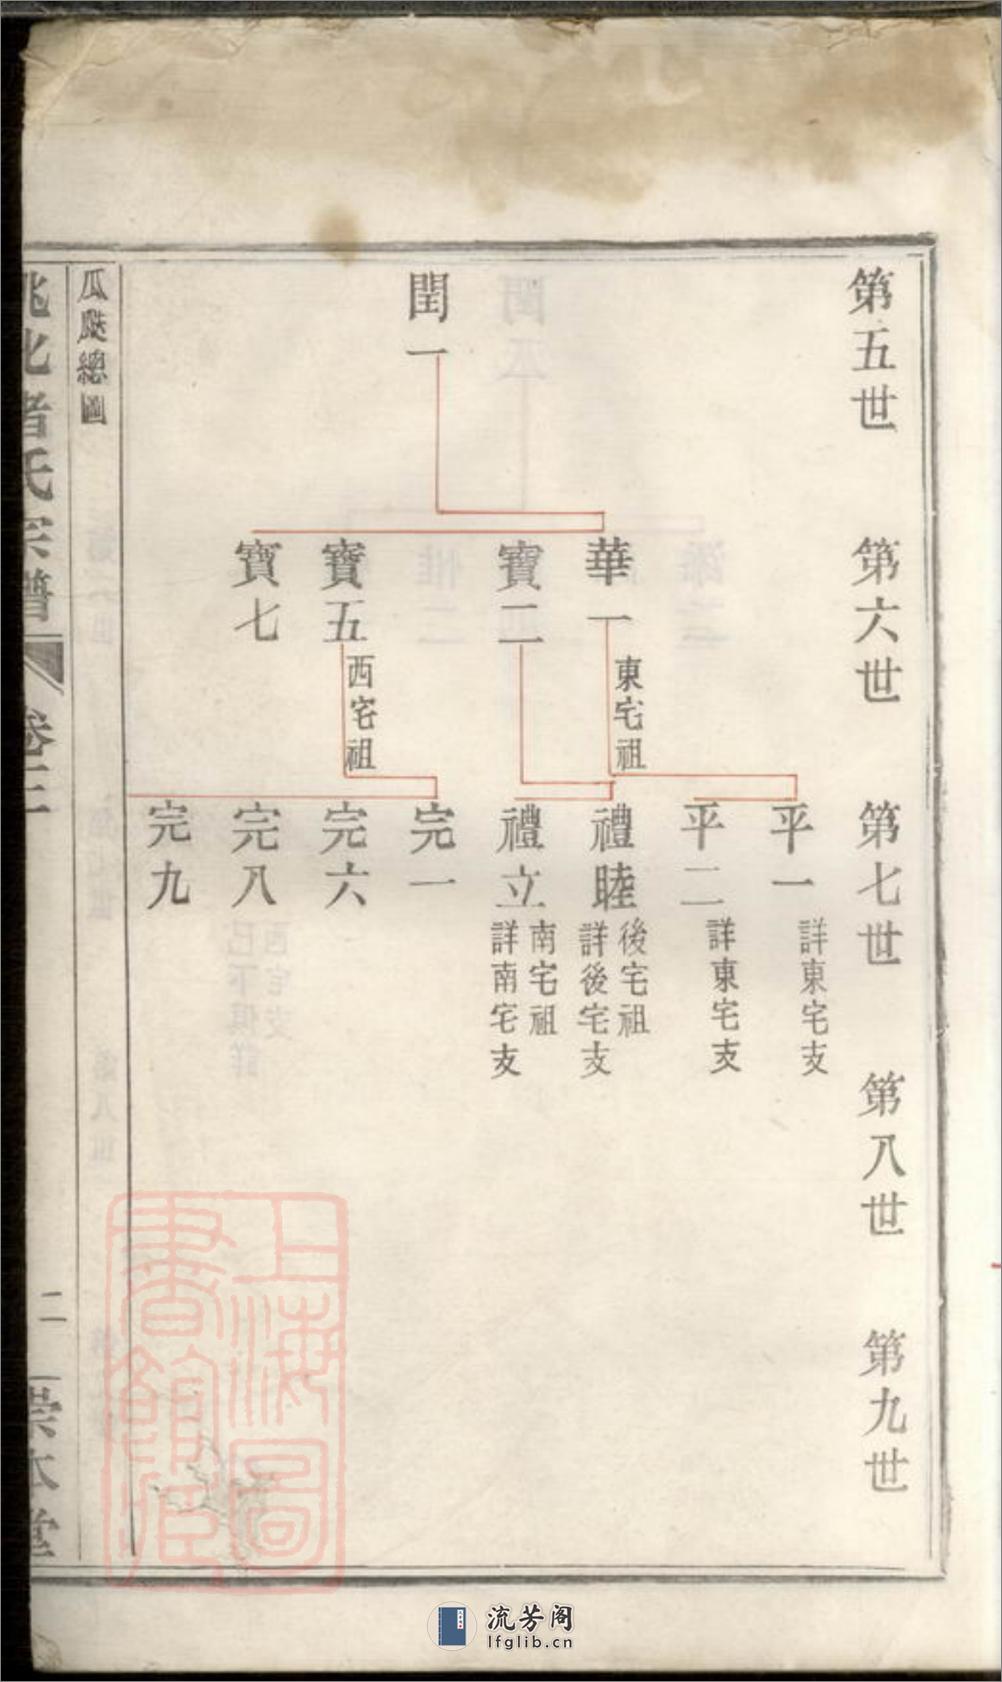 第五世
第六世
第七世
第八世
第九世
閏一
華一
東宅祖
寶二
寶五
西宅祖
寶七
平一
詳東宅支
平二
詳東宅支
禮睦
後宅祖
詳後宅支
禮立
南宅祖
詳南宅支
完一
完六
完八
完九
瓜瓞總圖
氏宗譜
卷三
二
崇本堂
上海圖
書館藏
流芳阁
lfglib.cn